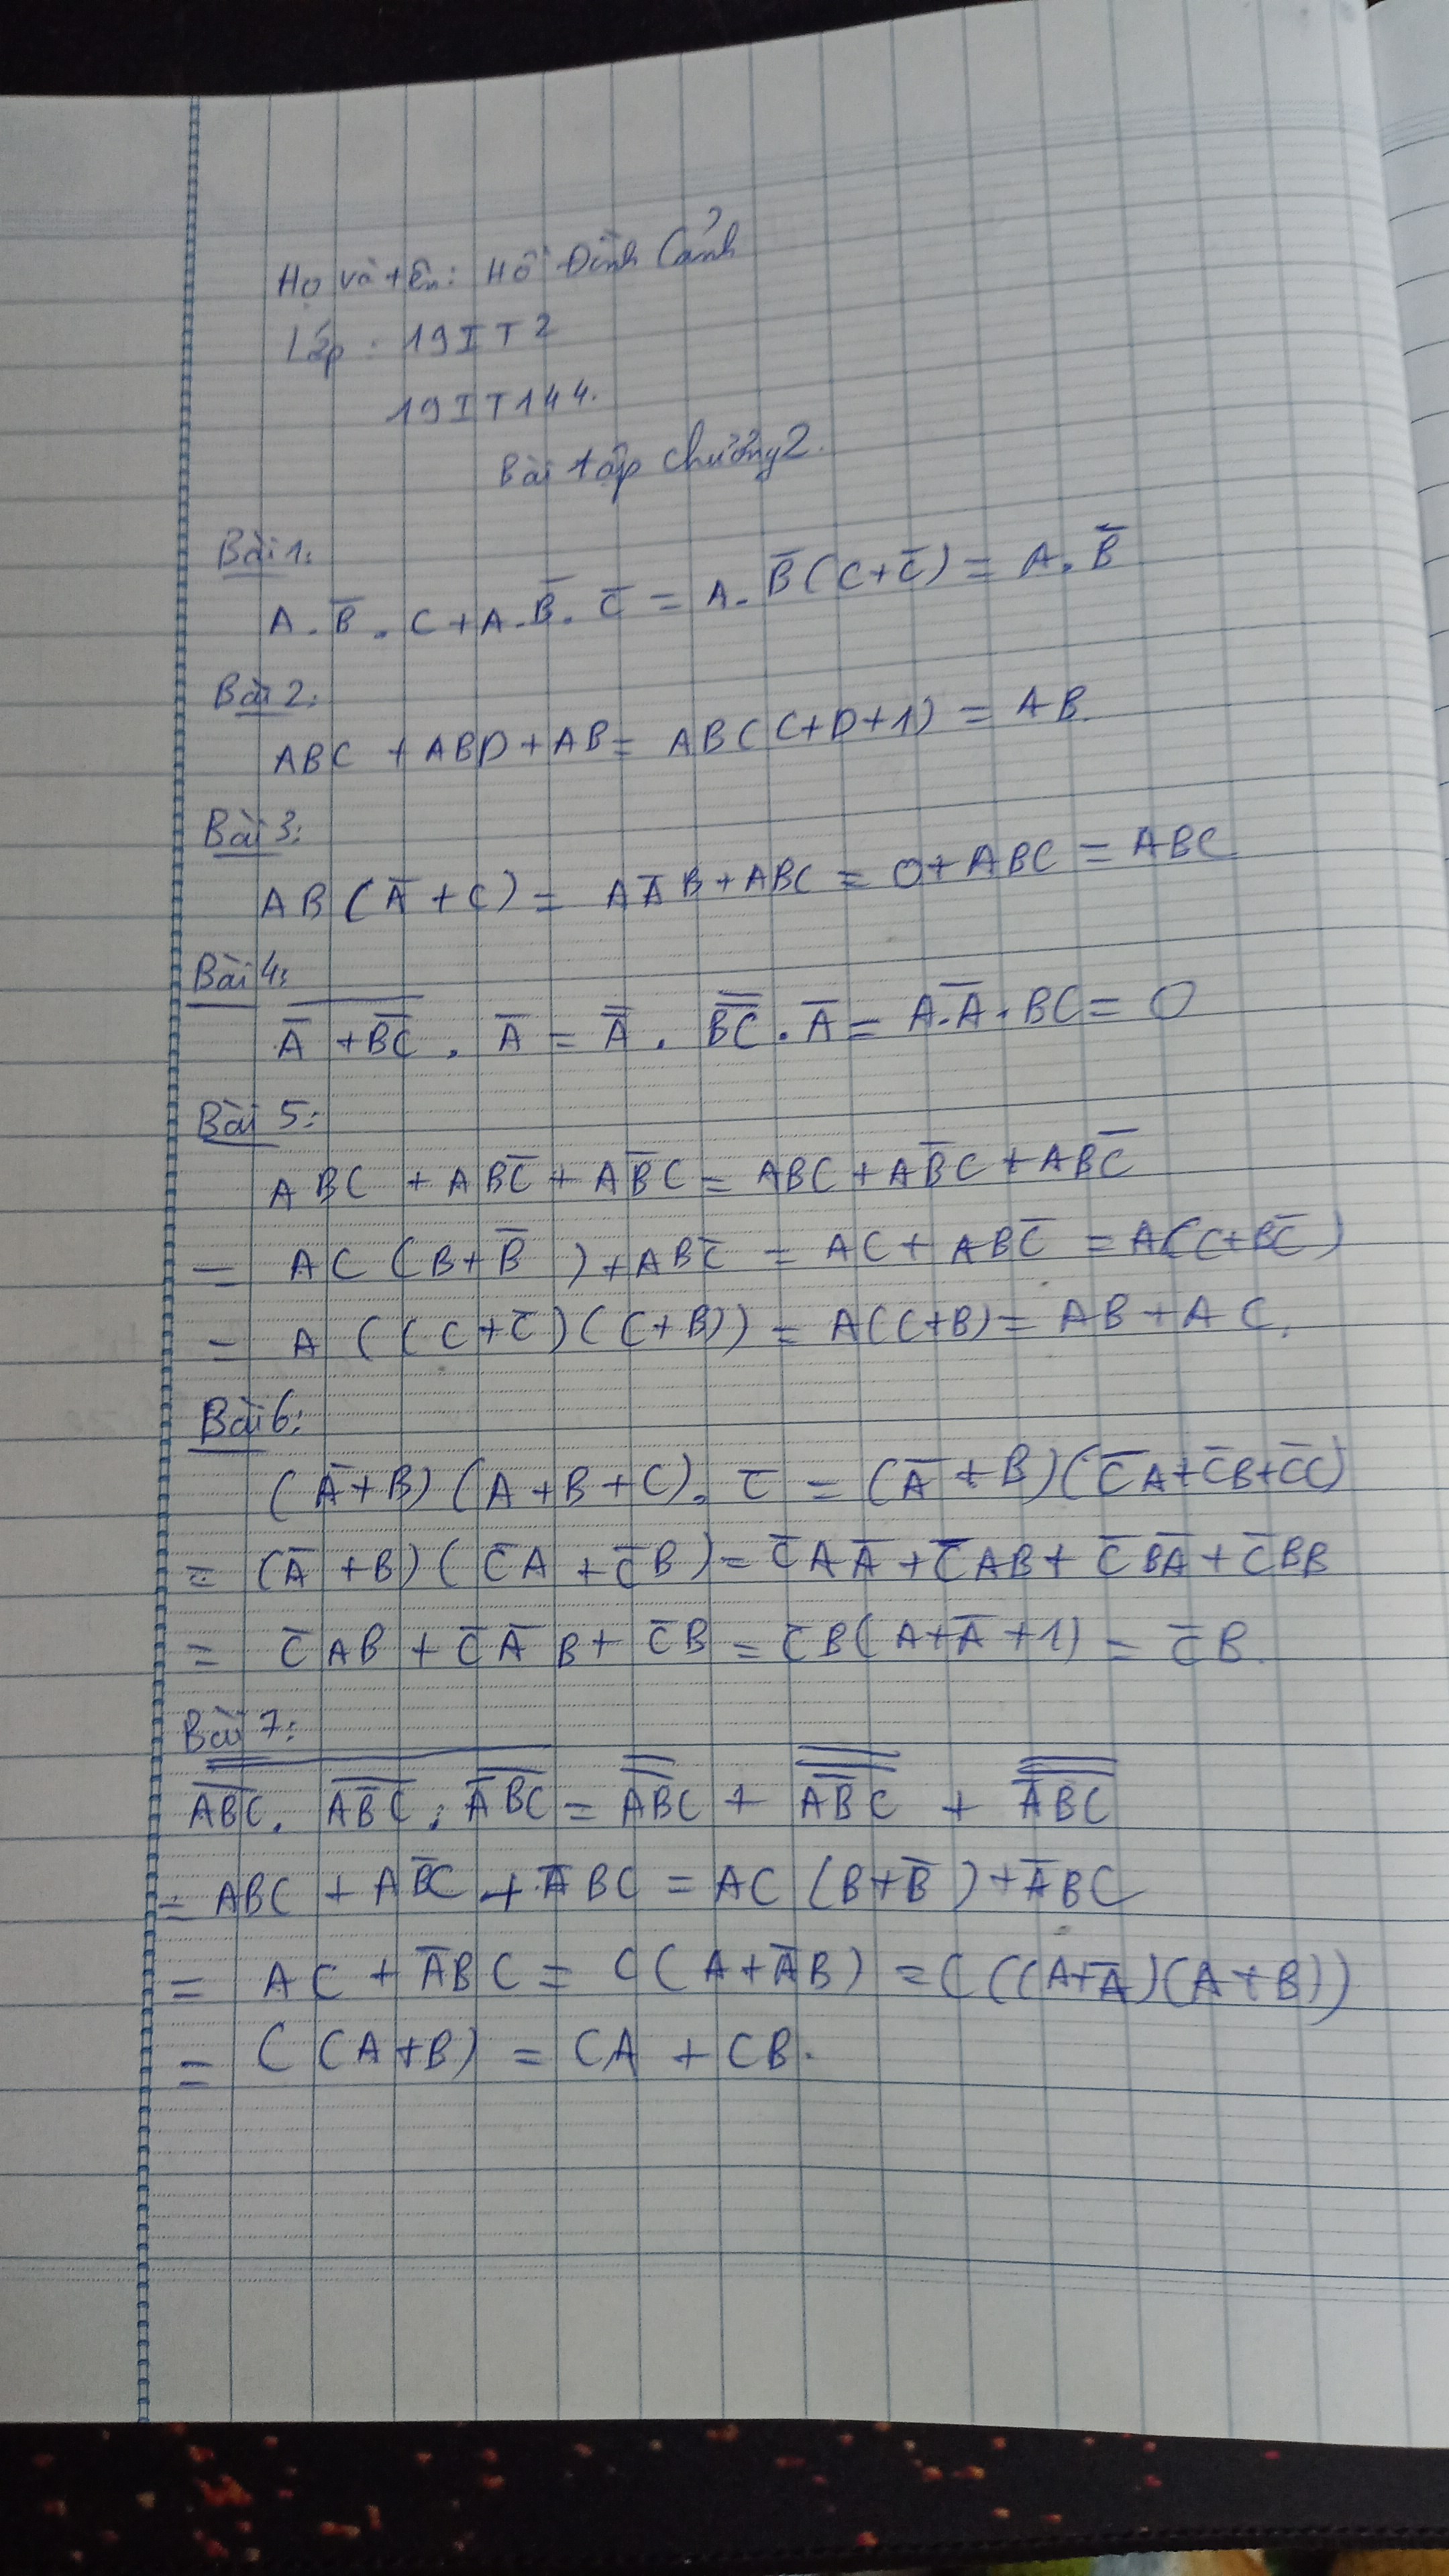 Họ và tên: Hồ Đình Cảnh
Lớp: 19IT2
19IT144.
Bài tập chương 2.
Bài 1:
A.B̅.C + A.B̅.C̅ = A.B̅(C+C̅) = A.B̅
Bài 2:
ABC + ABD + AB = AB(C+D+1) = AB.
Bài 3:
AB(A̅+C) = AA̅B + ABC = 0 + ABC = ABC
Bài 4:
\overline{A̅ + \overline{BC}} . A̅ = \overline{A̅} . \overline{\overline{BC}} . A̅ = A.A̅.BC = 0
Bài 5:
ABC + ABC̅ + AB̅C = ABC + AB̅C + ABC̅
= AC(B+B̅) + ABC̅ = AC + ABC̅ = A(C+BC̅)
= A((C+C̅)(C+B)) = A(C+B) = AB + AC.
Bài 6:
(A̅+B)(A+B+C).C̅ = (A̅+B)(C̅A+C̅B+C̅C)
= (A̅+B)(C̅A+C̅B) = C̅AA̅ + C̅AB + C̅BA̅ + C̅BB
= C̅AB + C̅A̅B + C̅B = C̅B(A+A̅+1) = C̅B.
Bài 7:
\overline{\overline{ABC} . \overline{AB̅C} . \overline{A̅BC}} = \overline{\overline{ABC}} + \overline{\overline{AB̅C}} + \overline{\overline{A̅BC}}
= ABC + AB̅C + A̅BC = AC(B+B̅) + A̅BC
= AC + A̅BC = C(A+A̅B) = C((A+A̅)(A+B))
= C(A+B) = CA + CB.